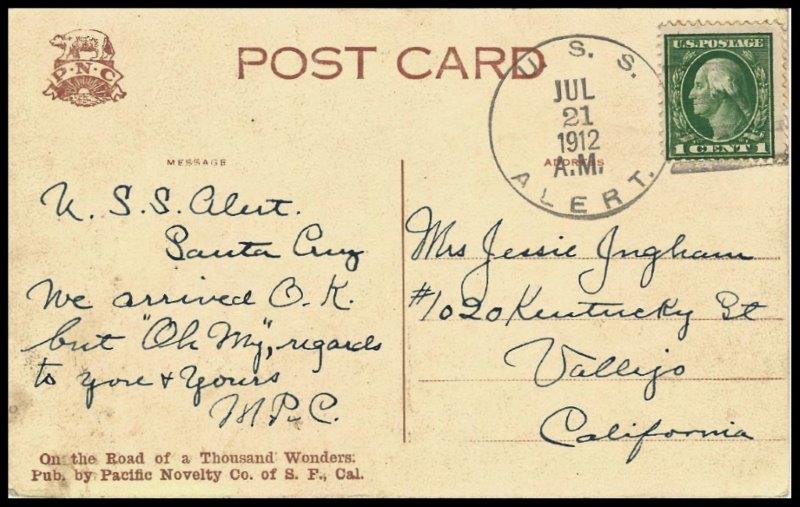 P·N·C
POST CARD
U.S.S. ALERT.
JUL
21
1912
A.M.
U.S. POSTAGE
1 CENT 1
MESSAGE
ADDRESS
U.S.S. Alert.
Santa Cruz
We arrived O.K.
but "Oh My", regards
to you & yours
M.P.C.
Mrs Jessie Ingham
#1020 Kentucky St
Vallejo
California
On the Road of a Thousand Wonders.
Pub. by Pacific Novelty Co. of S. F., Cal.